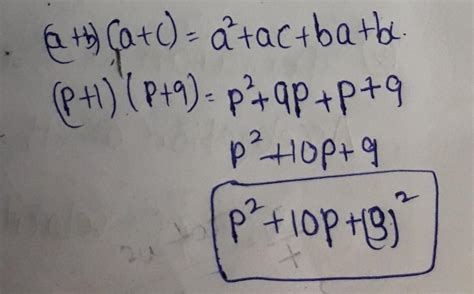 (a+b)(a+c) = a²+ac+ba+bc.
(p+1)(p+9) = p²+9p+p+9
p²+10p+9
p²+10p+(3)²